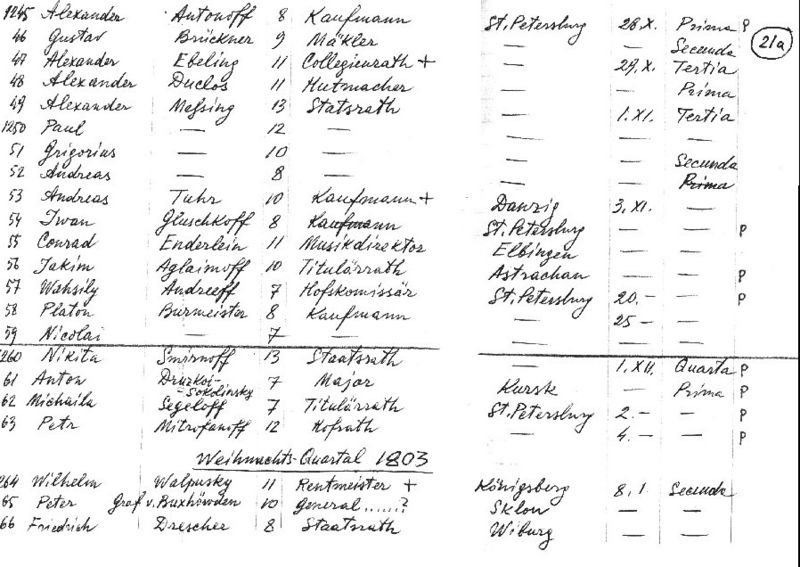 1245 Alexander Antonoff 8 Kaufmann St. Petersburg 28.X. Prima P
46 Gustav Brückner 9 Mäkler — — Secunda
21a
47 Alexander Ebeling 11 Collegienrath + — 29.X. Tertia
48 Alexander Duclos 11 Hutmacher — — Prima
49 Alexander Messing 13 Statsrath — 1.XI. Tertia
1250 Paul — 12 — — — —
51 Grigorius — 10 — — — Secunda
52 Andreas — 8 — — — Prima
53 Andreas Tuhr 10 Kaufmann + Danzig 3.XI. —
54 Iwan Gluschkoff 8 Kaufmann St. Petersburg — — P
55 Conrad Enderlein 11 Musikdirektor Elbingen — —
56 Jakim Aglaimoff 10 Titulärrath Astrachan — — P
57 Wahsily Andreeff 7 Hofskomissär St. Petersburg 20.— — P
58 Platon Burmeister 8 Kaufmann — 25 — —
59 Nicolai — 7 — — — —
260 Nikita Smirnoff 13 Staatsrath — 1.XII. Quarta P
61 Anton Druzkoi-Sokolinsky 7 Major Kursk — Prima P
62 Michaila Segeloff 7 Titulärrath St. Petersburg 2.— — P
63 Petr Mitrofanoff 12 Hofrath — 4.— — P
Weihnachts-Quartal 1803
264 Wilhelm Walpusky 11 Rentmeister + Königsberg 8.1. Secunda
65 Peter Graf v. Buxhöwden 10 General.......? Sklow — —
66 Friedrich Drescher 8 Staatsrath Wiburg — —